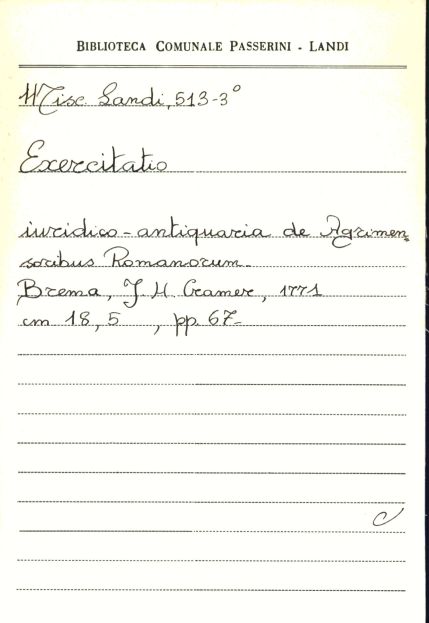 BIBLIOTECA COMUNALE PASSERINI - LANDI
Misc. Landi, 513-3°
Exercitatio
iuridico-antiquaria de Agrimen,
soribus Romanorum.
Brema, J. H. Cramer, 1771
cm 18,5 , pp. 67-